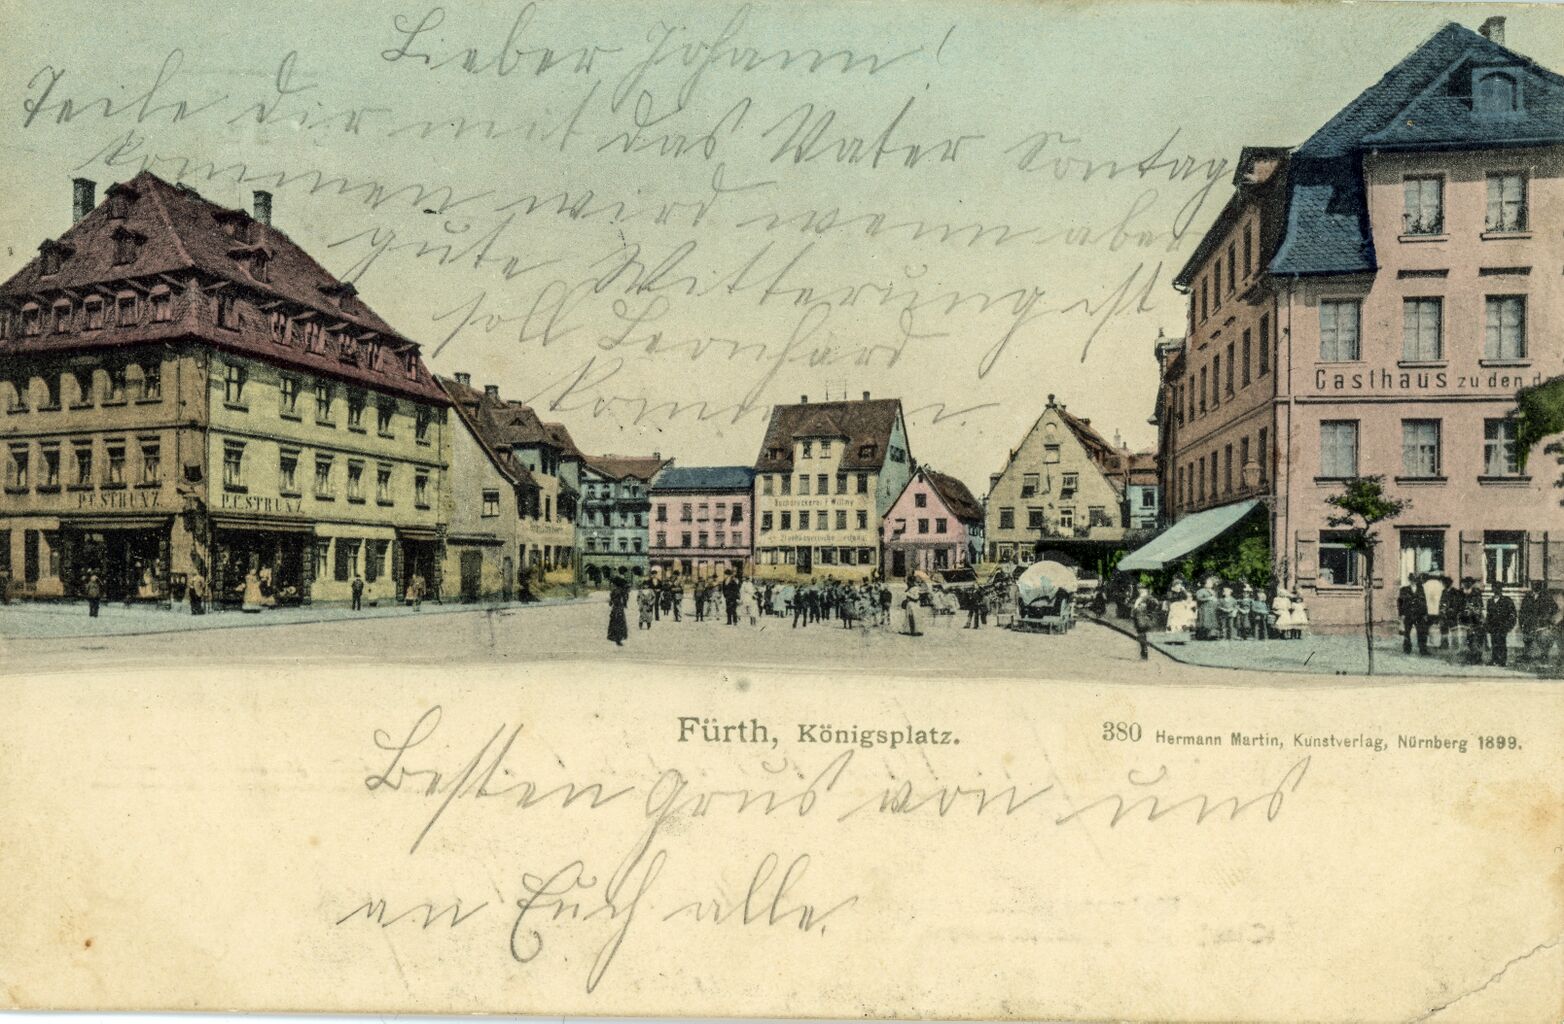 Lieber Johann!
Teile dir mit das Vater Sontag
kommen wird wenn aber
gute Witterung ist
soll Leonhard
kommen.
P.C.STRUNZ
P.C.STRUNZ
Buchdruckerei J. Willmy
Gasthaus zu den d
Fürth, Königsplatz.
380 Hermann Martin, Kunstverlag, Nürnberg 1899.
Besten Grus von uns
an Euch alle.